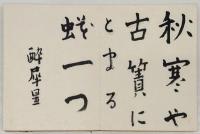 秋寒や
古簀に
とまる
蛾一つ
酔犀星